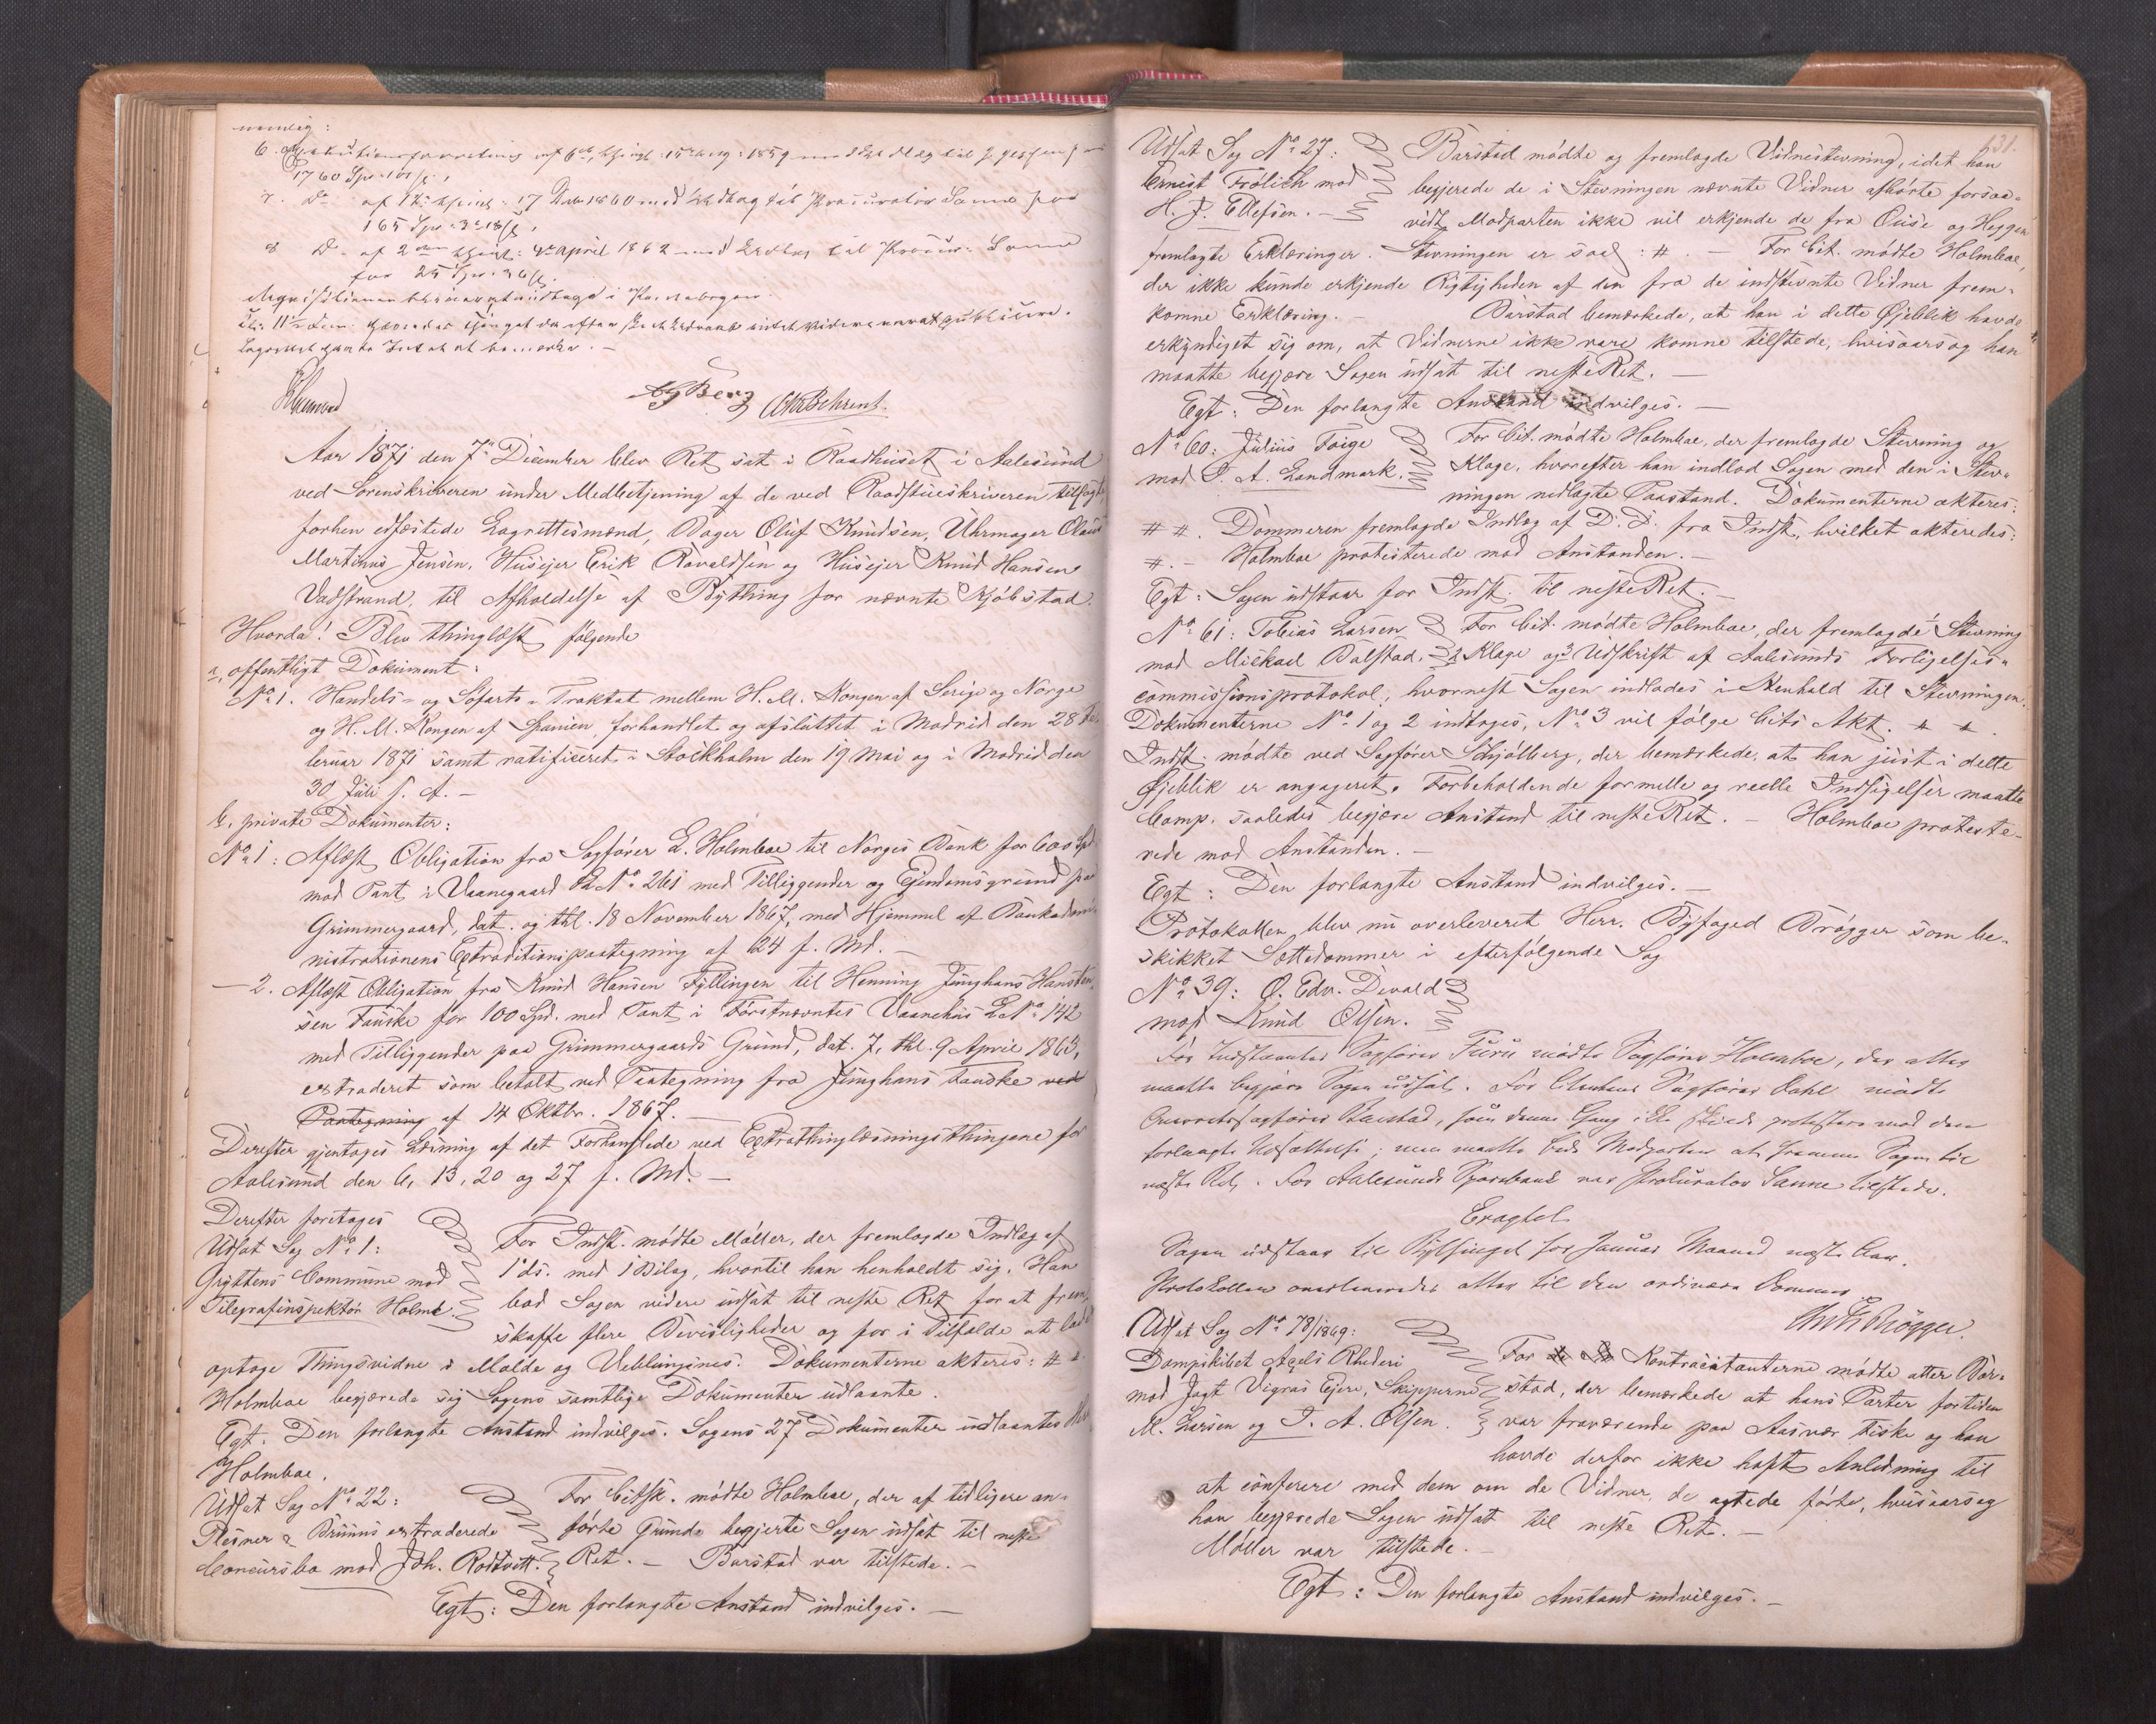 nemlig:
6. Exekutionsforretning af 6te, thingl: 15 Aug: 1859 med Udlæg til J. Jessen for
1760 Spd. 101 ß,
7. Do af thingl: 17 Debr 1860 med Udlæg til Procurator Sanne for
165 Spd. 3 18 ß,
8 Do af 2den thingl: 4de April 1862 med Udlæg til Procur. Sanne
for 25 Spd. 36 ß.
i Pantebogen.
Kl. 11½
Lagrettet havde Intet at bemærke. —
AgBerg CMBehrent.
Aar 1871 den 7de December blev Ret sat i Raadhuset i Aalesund
ved Sorenskriveren under Medbetjening af de ved Raadstueskriveren tilsagte
forhen edfæstede Lagrettesmænd, Bager Oluf Knudsen, Uhrmager Olaus
Martinus Jensen, Huseier Erik Ravaldsen og Huseier Knud Hansen
Vadstrand, til Afholdelse af Bything for nævnte Kjøbstad.
Hvorda! Blev thinglæst følgende
a, offentligt Dokument:
No 1. Handels- og Søfarts-Traktat mellem H. M. Kongen af Sverige og Norge
og H. M. Kongen af Spanien, forhandlet og afsluttet i Madrid den 28 Fe-
bruar 1871 samt ratificeret i Stockholm den 19 Mai og i Madrid den
30 Juli s. A. —
b, private Dokumenter:
No 1: Aflæst Obligation fra Sagfører L. Holmboe til Norges Bank for 600 Spd.
mod Pant i Vaanegaard No 261 med Tilliggender og Eiendomsgrund paa
Grimmergaard, dat. og thl. 18 November 1867, med Hjemmel af Bankadmi-
nistrationens Extraditionspaategning af 24 f. Md. —
— 2. Aflæst Obligation fra Knud Hansen Fyllingen til Henning Junghans Hansten-
sen Fauske for 100 Spd. med Pant i Førstnævntes Vaanehus L No 142
med Tilliggender paa Grimmergaards Grund, dat. 7, thl. 9 April 1863,
extraderet som betalt ved Paategning fra Junghans Fauske ved
Paategning af 14 Oktbr. 1867. —
Derefter gjentages Læsning af det Forhandlede ved Extrathinglæsningsthingene for
Aalesund den 6, 13, 20 og 27 f. Md. —
Derefter foretages
Udsat Sag No 1:
Gryttens Commune mod
Telegrafinspektør Holmb.
For Indst. mødte Møller, der fremlagde Indlæg af
1 ds. med 1 Bilag, hvortil han henholdt sig. Han
bad Sagen videre udsat til næste Ret for at frem-
skaffe flere Bevisligheder og for i Tilfælde at lade
optage Thingsvidne i Molde og Veblungsnes. Dokumenterne akteres: # #.
Holmboe begjærede sig Sagens samtlige Dokumenter udlaante.
Egt. Den forlangte Anstand indvilges. Sagens 27 Dokumenter udlaantes Hr
Holmboe.
Udsat Sag No 22:
Plesner & Bruuns extraderede
Concursbo mod Joh. Rødtvitt.
For Citsk. mødte Holmboe, der af tidligere an-
førte Grunde begjerte Sagen udsat til neste
Ret. — Barstad var tilstede. —
Egt: Den forlangte Anstand indvilges. —
131.
Udsat Sag No 27:
Ernest Frölich mod
H. J. Ellefsen. —
Barstad mødte og fremlagde Vidnestevning, idet han
begjerede de i Stevningen nævnte Vidner afhørte forsaa-
vidt Modparten ikke vil erkjende de fra Quise og Heggen
fremlagte Erklæringer. Stevningen er saal: #. — For Cit. mødte Holmboe,
der ikke kunde erkjende Rigtigheden af den fra de indstevnte Vidner frem-
komne Erklæring. — Barstad bemærkede, at han i dette Øjeblik havde
erkyndiget sig om, at Vidnerne ikke vare komne tilstede, hvisaarsag han
maatte begjære Sagen udsat til neste Ret. —
Egt: Den forlangte Anstand indvilges. —
No 60: Julius Faige
mod P. A. Landmark.
For Cit. mødte Holmboe, der fremlagde Stevning og
Klage, hvorefter han indlod Sagen med den i Stev-
ningen nedlagte Paastand. Dokumenterne akteres:
# #. Dommeren fremlagde Indlæg af D. D. fra Indst, hvilket akteredes:
#. — Holmboe protesterede mod Anstanden. —
Egt: Sagen udstaar for Indst. til neste Ret. —
No 61: Tobias Larsen
mod Mickael Dalstad.
For Cit. mødte Holmboe, der fremlagde 1 Stevning
2 Klage og 3 Udskrift af Aalesunds Forligelses-
commissionsprotokol, hvornest Sagen indlodes i Henhold til Stevningen.
Dokumenterne No 1 og 2 indtages, No 3 vil følge Cits Akt. # #.
Indst. mødte ved Sagfører Schjølberg, der bemærkede, at han just i dette
Øjeblik er angageret. Forbeholdende formelle og reelle Indsigelser maatte
Comp. saaledes begjære Anstand til neste Ret. — Holmboe proteste-
rede mod Anstanden. —
Egt: Den forlangte Anstand indvilges. —
Protokollen blev nu overleveret Herr. Byfoged Brøgger som be-
skikket Sættedommer i efterfølgende Sag
No 39: O. Edv. Devold
mod Knud Olsen.
For Indstævnte Sagfører Furu mødte Sagfører Holmboe, der atter
maatte begjære Sagen udsat. For Citanten Sagfører Dahl mødte
Overretssagfører Barstad, som denne Gang ikke protestere mod den
forlangte Udsættelse; men maatte bede Modparten at fremme Sagen til
næste Ret. For Aalesunds Sparebank var Prokurator Sanne tilstede.
Eragtet
Sagen udstaar til Bythinget for Januar Maaned næste Aar.
Protokollen overleveredes atter til den ordinære Dommer
Brøgger.
Udsat Sag No 78/1869:
Dampskibet Axels Rhederi
mod Jagt Vigras Ejere, Skipperne
M. Larsen og P. A. Olsen.
For Kontracitanterne mødte atter Bar-
stad, der bemærkede at hans Parter fortiden
var fraværende paa Aasvær fiske og han
havde derfor ikke haft Anledning til
at conferere med dem om de Vidner, de agtede førte, hvisaarsag
han begjærede Sagen udsat til neste Ret. —
Møller var tilstede. —
Egt: Den forlangte Anstand indvilges. —